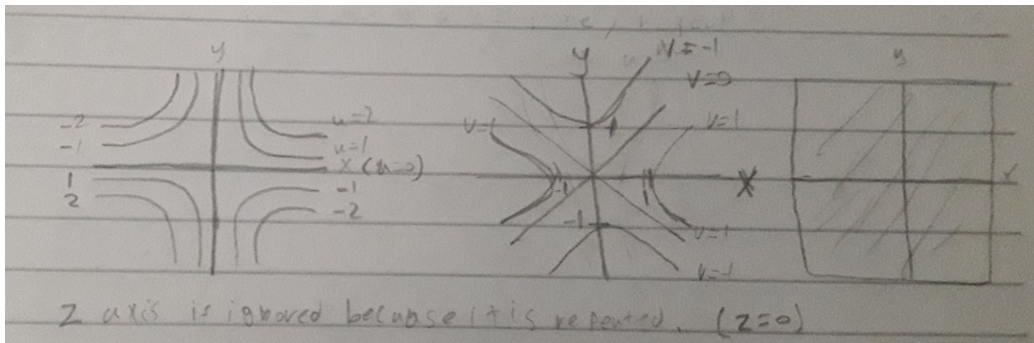 y
-2
-1
1
2
u=2
u=1
x (u=0)
-1
-2
y
v=-1
v=0
v=1
v=1
1
-1
1
x
-1
v=1
v=-1
y
x
z axis is ignored because it is repeated. (z=0)